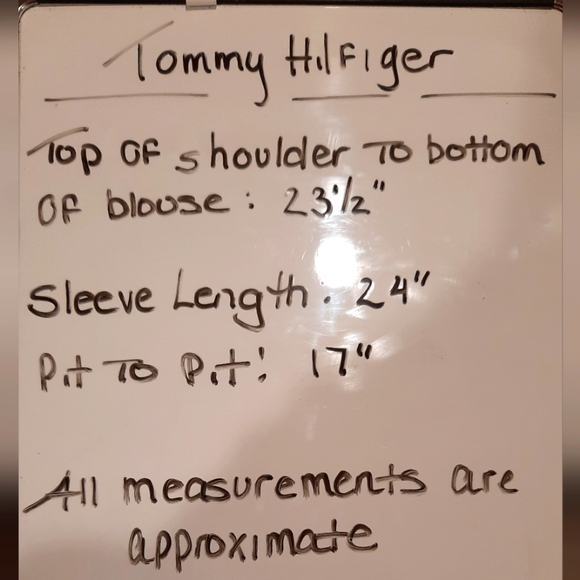 Tommy Hilfiger
Top of shoulder to bottom
of blouse: 23 1/2"
Sleeve Length: 24"
Pit to Pit: 17"
All measurements are
approximate